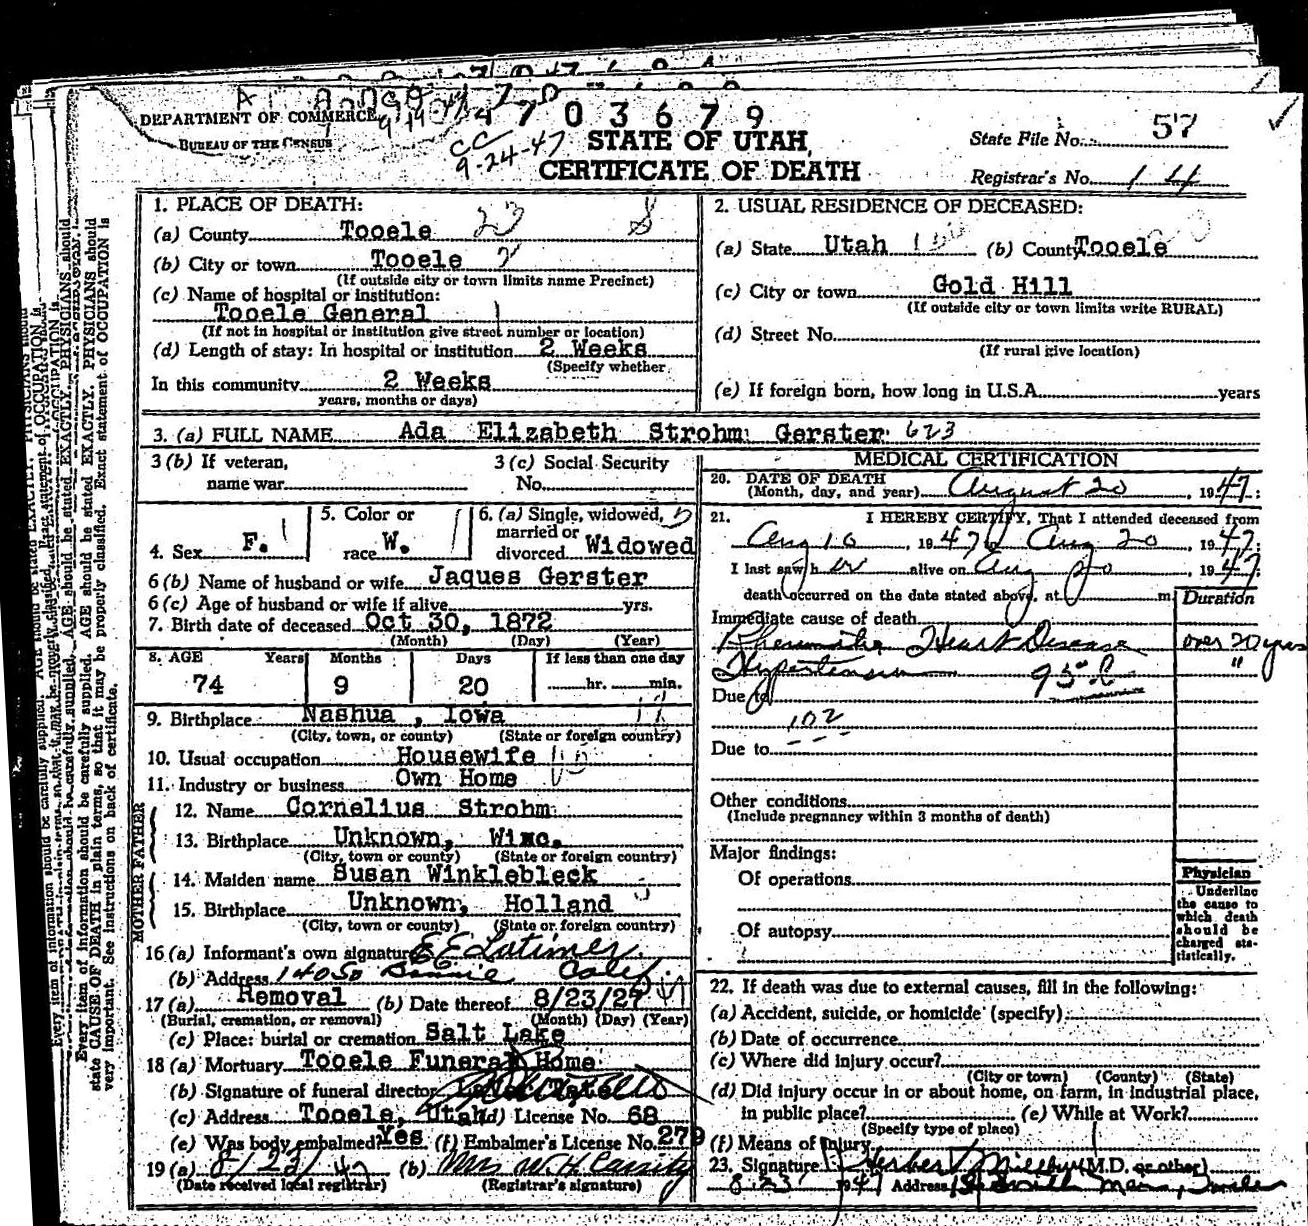 DEPARTMENT OF COMMERCE
BUREAU OF THE CENSUS
4703679
CC
9-24-47
STATE OF UTAH
CERTIFICATE OF DEATH
State File No. 57
Registrar's No. 14
1. PLACE OF DEATH:
(a) County Tooele 23 8
(b) City or town Tooele 2
(If outside city or town limits name Precinct)
(c) Name of hospital or institution:
Tooele General
(If not in hospital or institution give street number or location)
(d) Length of stay: In hospital or institution 2 Weeks
(Specify whether
In this community 2 Weeks
years, months or days)
2. USUAL RESIDENCE OF DECEASED:
(a) State Utah (b) County Tooele
(c) City or town Gold Hill
(If outside city or town limits write RURAL)
(d) Street No.
(If rural give location)
(e) If foreign born, how long in U.S.A. years
3. (a) FULL NAME Ada Elizabeth Strohm Gerster 623
3 (b) If veteran,
name war
3 (c) Social Security
No.
4. Sex F.
5. Color or
race W.
6. (a) Single, widowed,
married or
divorced Widowed
6 (b) Name of husband or wife Jaques Gerster
6 (c) Age of husband or wife if alive yrs.
7. Birth date of deceased Oct 30, 1872
(Month) (Day) (Year)
8. AGE Years Months Days If less than one day
74 9 20 hr. min.
9. Birthplace Nashua, Iowa
(City, town, or county) (State or foreign country)
10. Usual occupation Housewife
11. Industry or business Own Home
FATHER
12. Name Cornelius Strohm
13. Birthplace Unknown, Wisc.
(City, town or county) (State or foreign country)
MOTHER
14. Maiden name Susan Winklebleck
15. Birthplace Unknown, Holland
(City, town or county) (State or foreign country)
16 (a) Informant's own signature E E Latimer
(b) Address 14050 Bonnie Calif
17 (a) Removal (b) Date thereof 8/23/27 47
(Burial, cremation, or removal) (Month) (Day) (Year)
(c) Place: burial or cremation Salt Lake
18 (a) Mortuary Tooele Funeral Home
(b) Signature of funeral director
(c) Address Tooele, Utah (d) License No. 68
(e) Was body embalmed? Yes (f) Embalmer's License No. 279
19 (a) 8/23/47 (b) Mrs W H Cassity
(Date received local registrar) (Registrar's signature)
MEDICAL CERTIFICATION
20. DATE OF DEATH
(Month, day, and year) August 20, 1947
21. I HEREBY CERTIFY, That I attended deceased from
Aug 10, 1947 to Aug 20, 1947
I last saw her alive on Aug 20 1947
death occurred on the date stated above, at m
Duration
Immediate cause of death
Rheumatic Heart Disease over 20 yrs
Hypertension 95-c "
Due to
102
Due to
Other conditions
(Include pregnancy within 3 months of death)
Major findings:
Of operations
Of autopsy
Physician
Underline
the cause to
which death
should be
charged sta-
tistically.
22. If death was due to external causes, fill in the following:
(a) Accident, suicide, or homicide (specify)
(b) Date of occurrence
(c) Where did injury occur?
(City or town) (County) (State)
(d) Did injury occur in or about home, on farm, in industrial place,
in public place? (e) While at Work?
(Specify type of place)
(f) Means of Injury
23. Signature Herbert Milburn (M.D. or other)
8-23 1947 Address
Every item of information should be carefully supplied. AGE should be stated EXACTLY. PHYSICIANS should
state CAUSE OF DEATH in plain terms, so that it may be properly classified. Exact statement of OCCUPATION is
very important. See instructions on back of certificate.